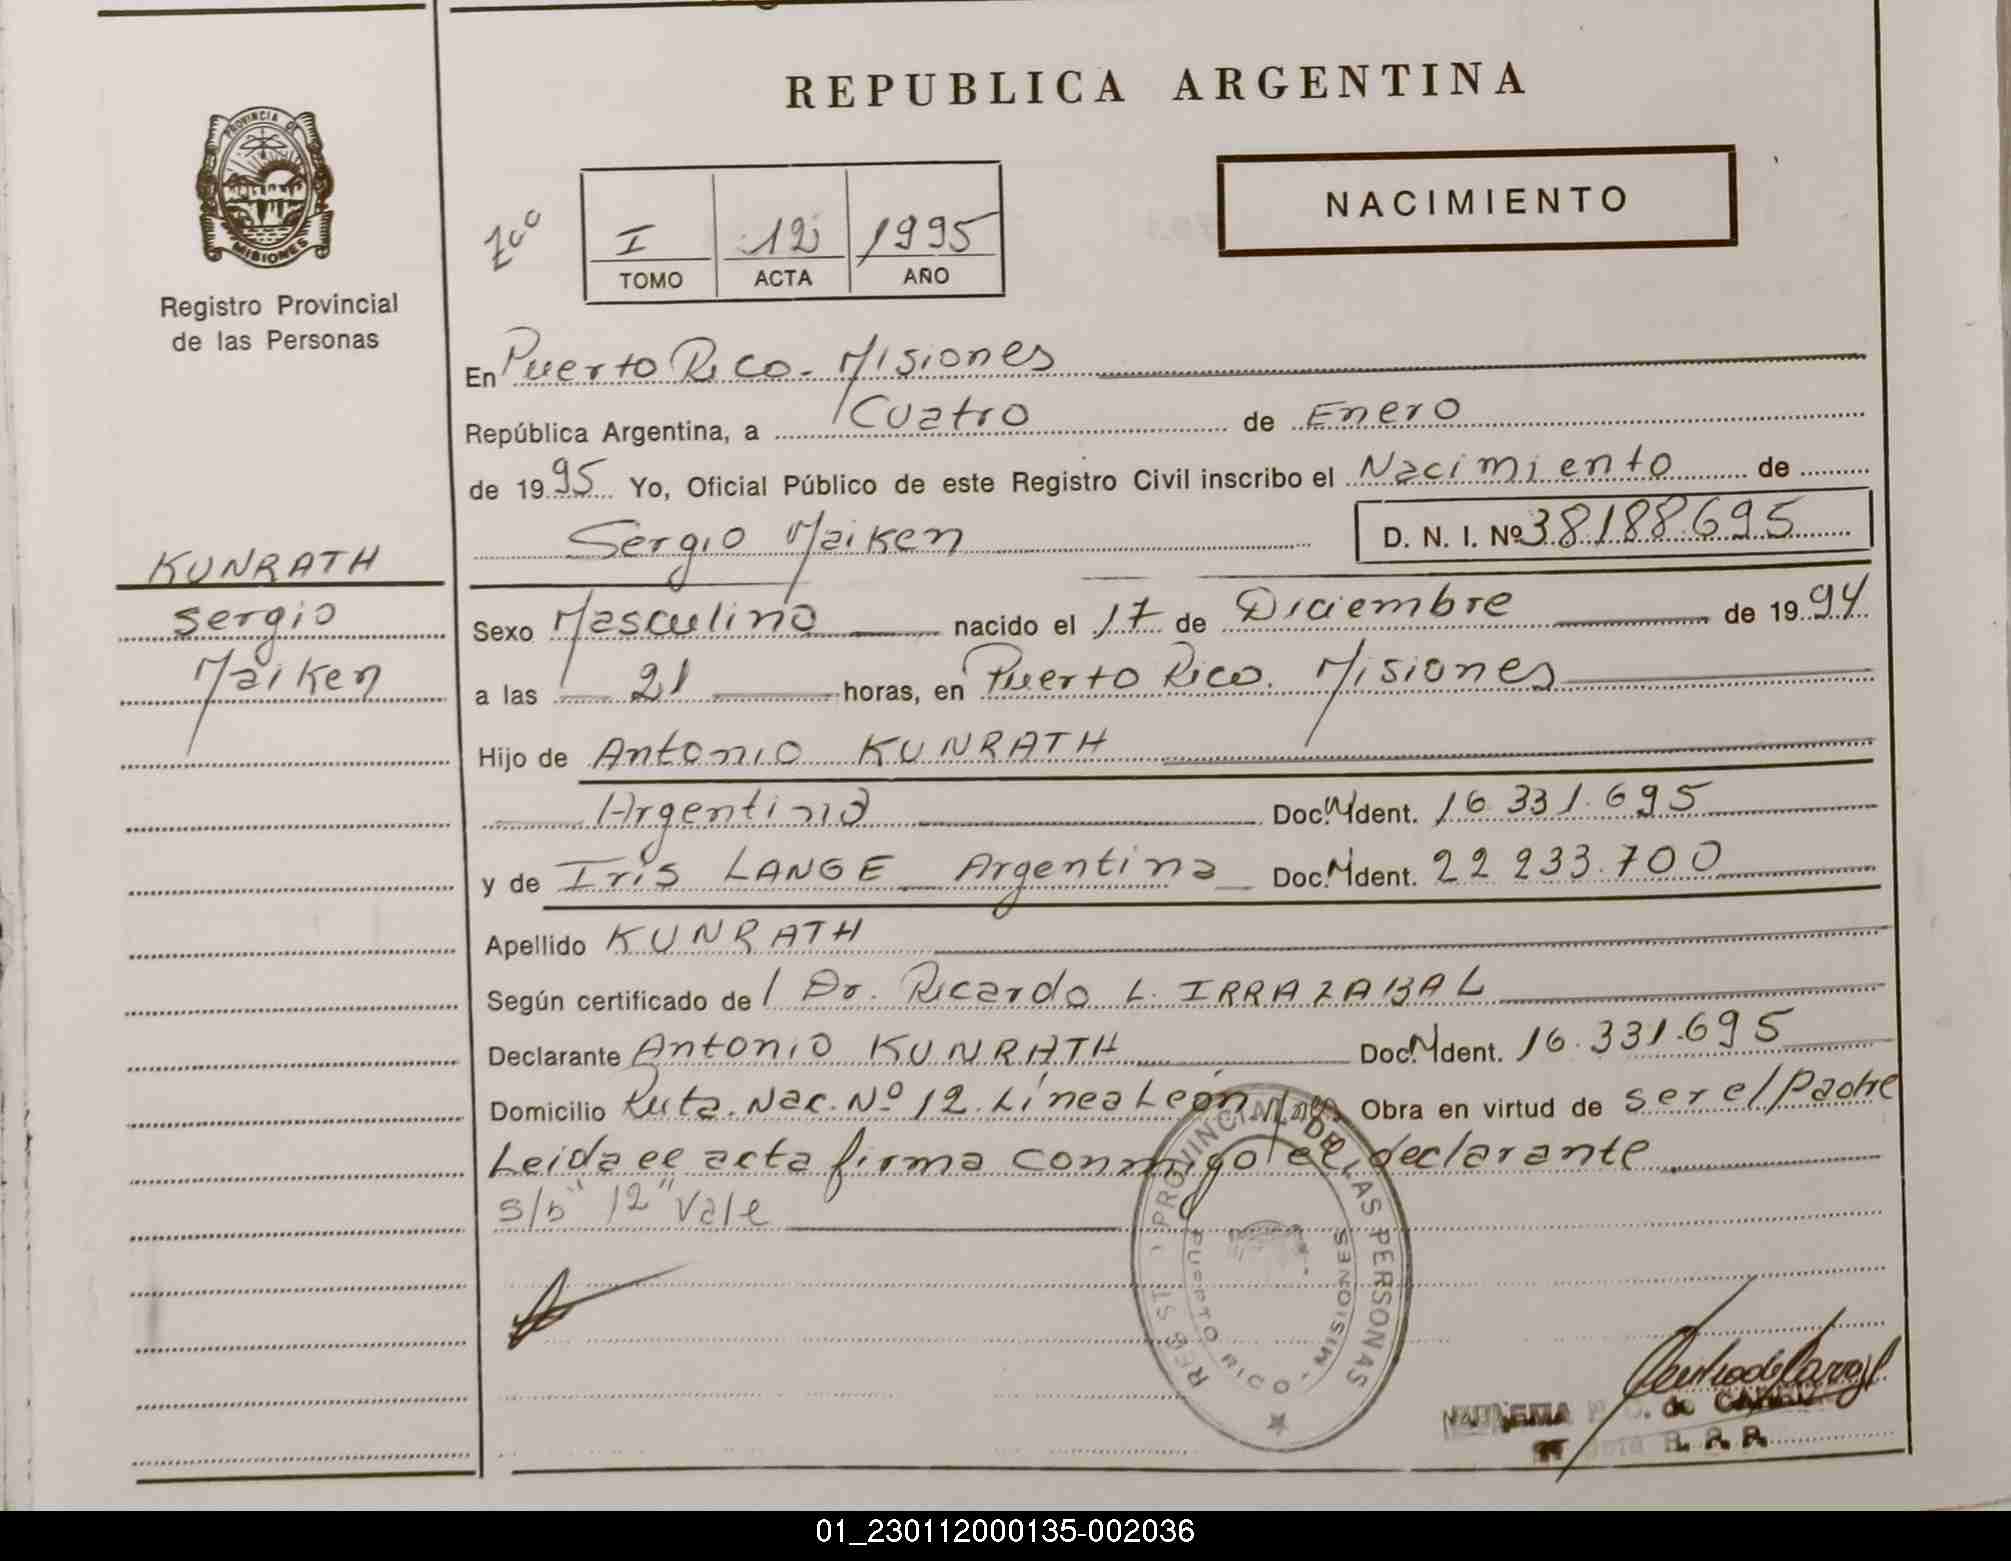 REPUBLICA ARGENTINA
PROVINCIA DE
MISIONES
Registro Provincial
de las Personas
NACIMIENTO
I 12 1995
TOMO ACTA AÑO
En Puerto Rico - Misiones
República Argentina, a Cuatro de Enero
de 1995 Yo, Oficial Público de este Registro Civil inscribo el Nacimiento de
Sergio Maiken D. N. I. Nº 38188.695
KUNRATH
Sergio
Maiken
Sexo Masculino nacido el 17 de Diciembre de 1994
a las 21 horas, en Puerto Rico. Misiones
Hijo de Antonio KUNRATH
Argentino Doc. M Ident. 16.331.695
y de Iris LANGE Argentina Doc. M Ident. 22 233.700
Apellido KUNRATH
Según certificado de Dr. Ricardo L. IRRAZABAL
Declarante Antonio KUNRATH Doc. M Ident. 16.331.695
Domicilio Ruta. Nac. Nº 12. Línea León Obra en virtud de ser el padre
Leida el acta firma conmigo el declarante
s/b "12" Vale
PROVINCIAL DE LAS PERSONAS
PUERTO RICO - MISIONES
de
R. P. P.
01_230112000135-002036